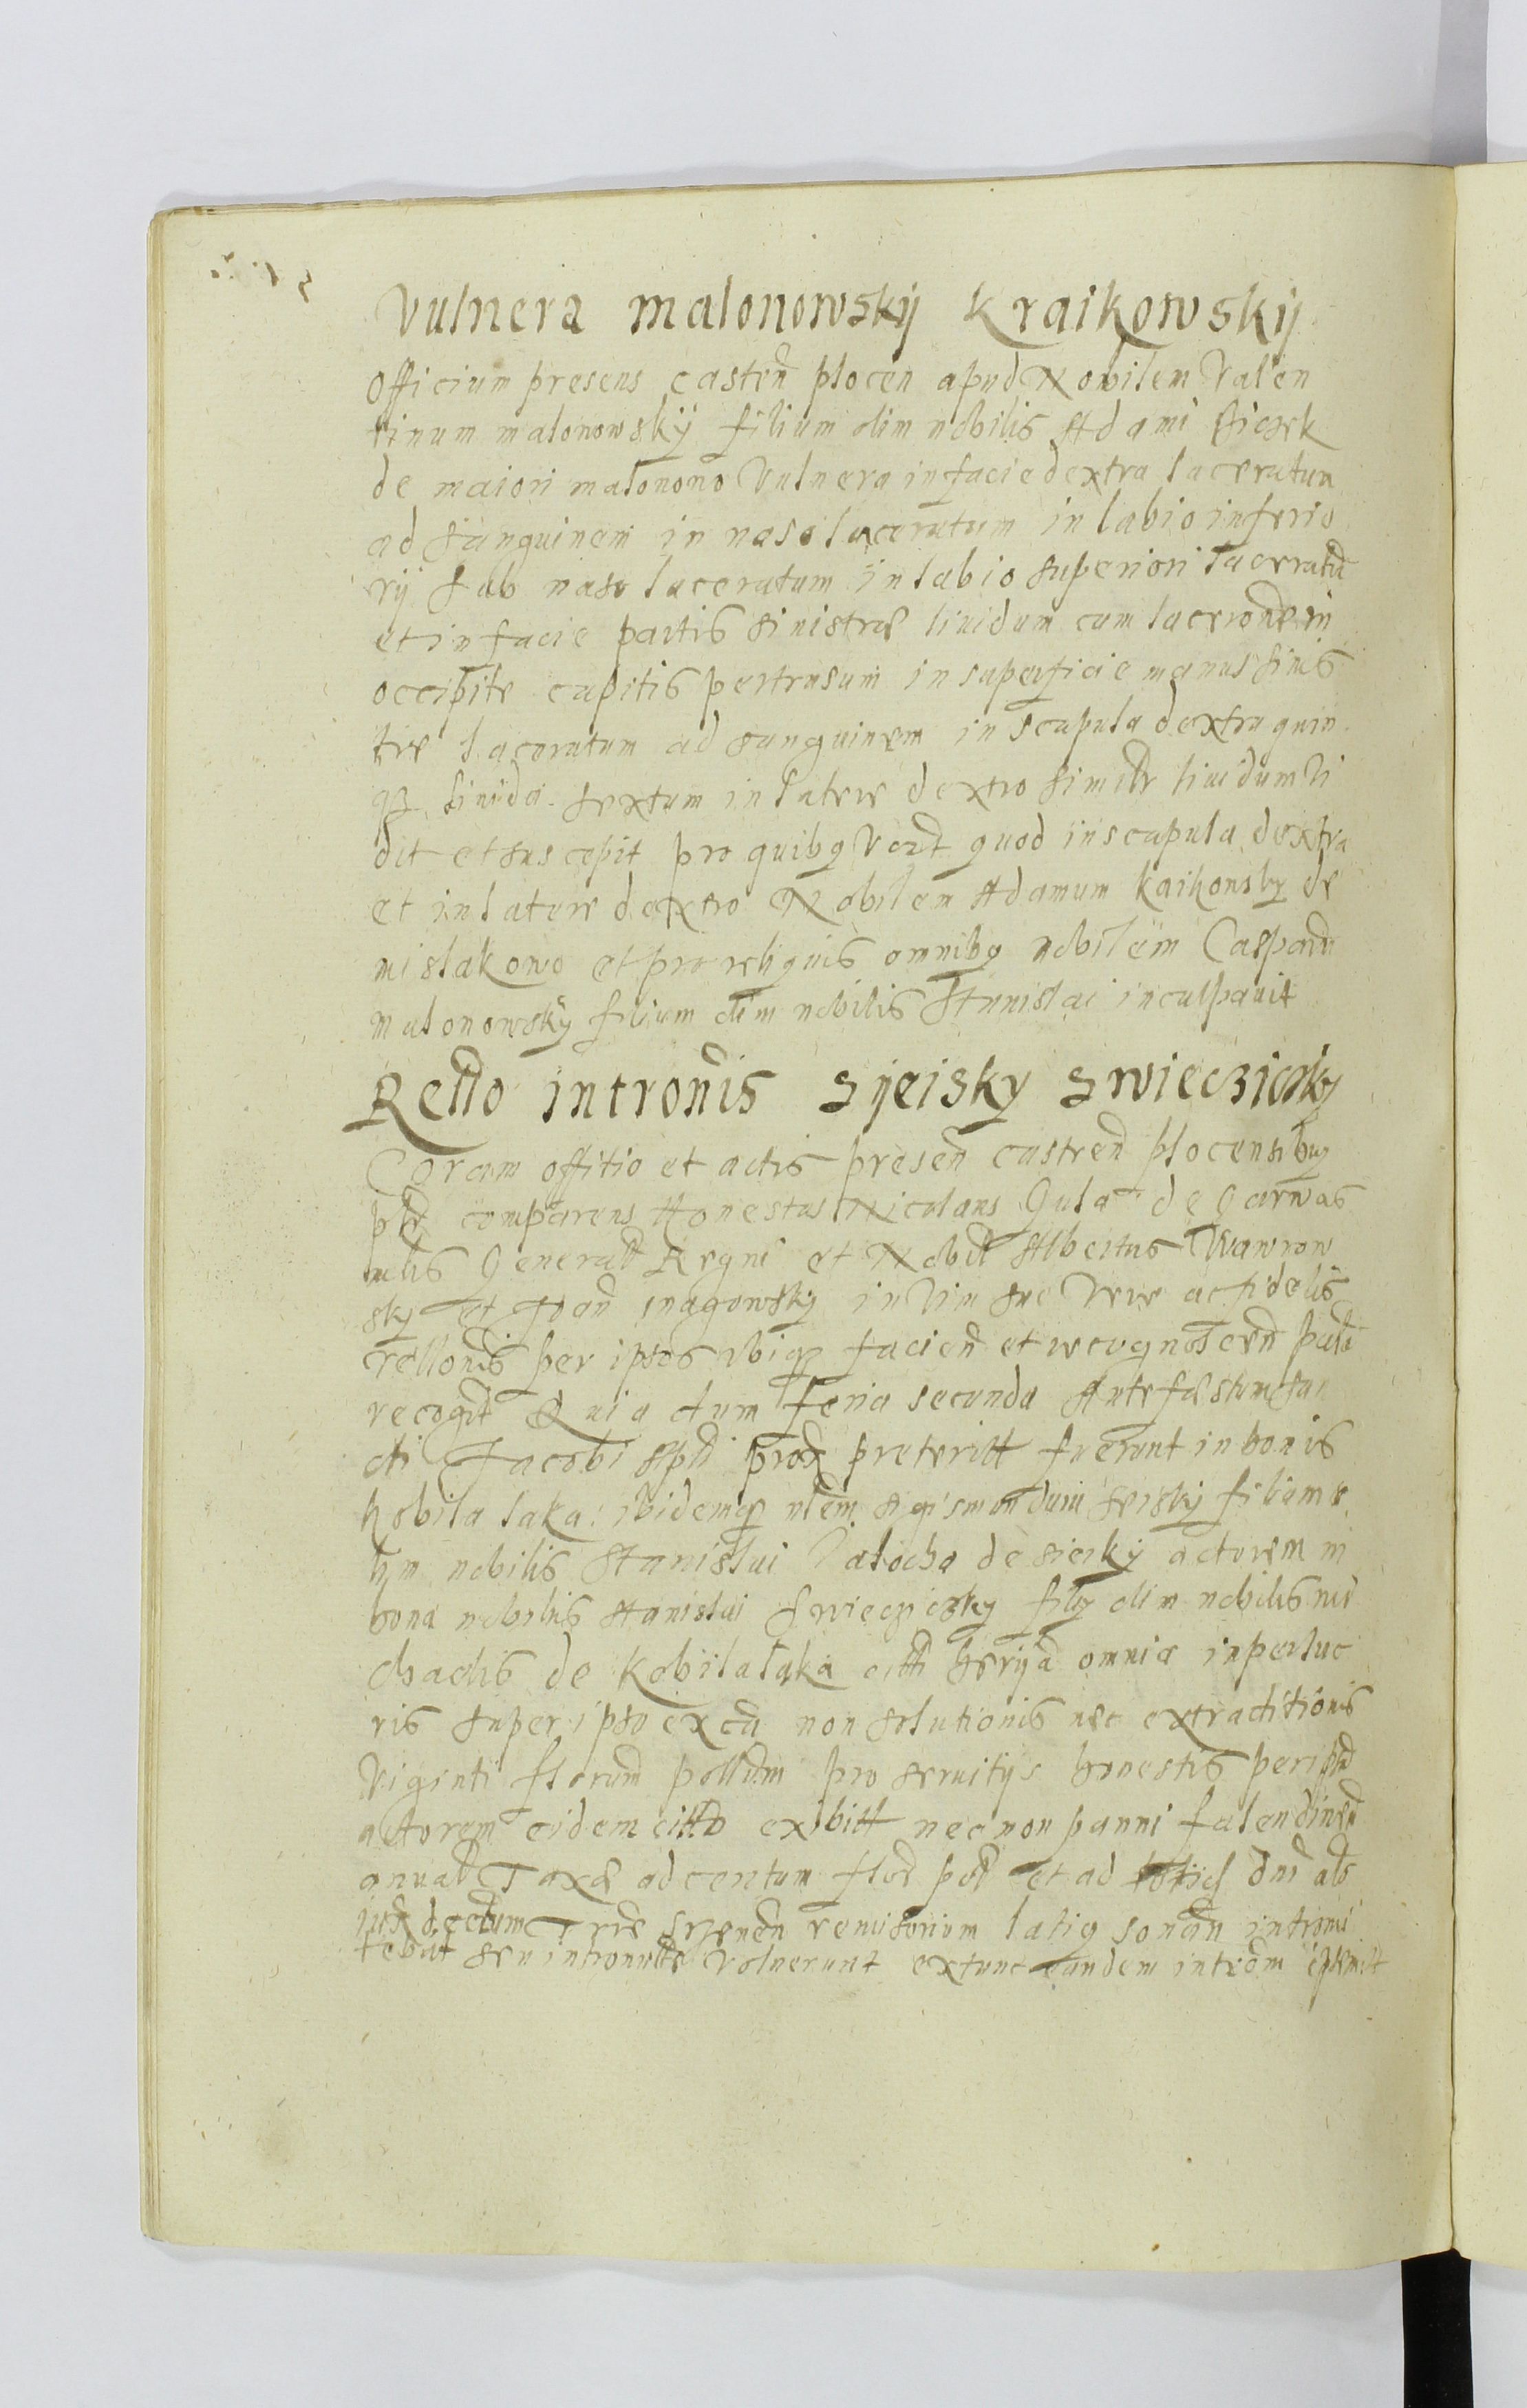 Vulnera malonowskij Kraikowskij
Officium presens castren plocen apud Nobilem Valen
tinum malonowskij filium olim nobilis Adami
de maiori malonono Vulnera in facie dextra laceratum
ad sanguinem in naso laceratum in labio inferio
rij sub naso laceratum in labio superiori laceratu
et in facie partis sinistræ liuidum cum lacerone in
occipite capitis pertrusum in superficie manus sinis
tre laceratum ad sanguinem in scapula dextra quin
qz liuida. sextum in latere dextro similr liuidum vi
dit et suscepit pro quibq vert quod in scapula dextra
et in latere dextro Nobilem Adamum kaikonsky de
mislakowo et pro reliquis omnibq nobilem Casparu
malonowsky filium olim nobilis Stanislai inculpauit
Rello intronis Sijeisky Swieczicky
Coram offitio et actis presen castren plocensibus
comparens Honestus Nicolaus Gula de Garwas
Generall Regni et Nobil Albertus Wawrow
sky et Joan snagowsky in vim sue vere ac fidelis
rellonis per ipsos ubiqz facien et recognoscen
recogt Quia dum feria secunda Ante festum san
cti Jacobi Apli prox preteritt fuerunt in bonis
kobila laka: ibidemqz nlem Sigismundum seisky filium
nobilis Stanislai Palocha de sieiky actorem in
bona nobilis Stanislai Swieczicky filij olim nobilis mi
chaelis de kobilalaka citti omnia in perluc
ris super ipso ex ca non solutionis nec extraditionis
Viginti florum pollum pro seruitijs honestis per ipsu
actorem eidem citto exbitt nec non panni falendinen
Taxæ ad centum flor pol et ad dni als
iux dectum Trre remisorium latiq sonan intromi
tebat seu intromitte voluerunt extunc eandem introm